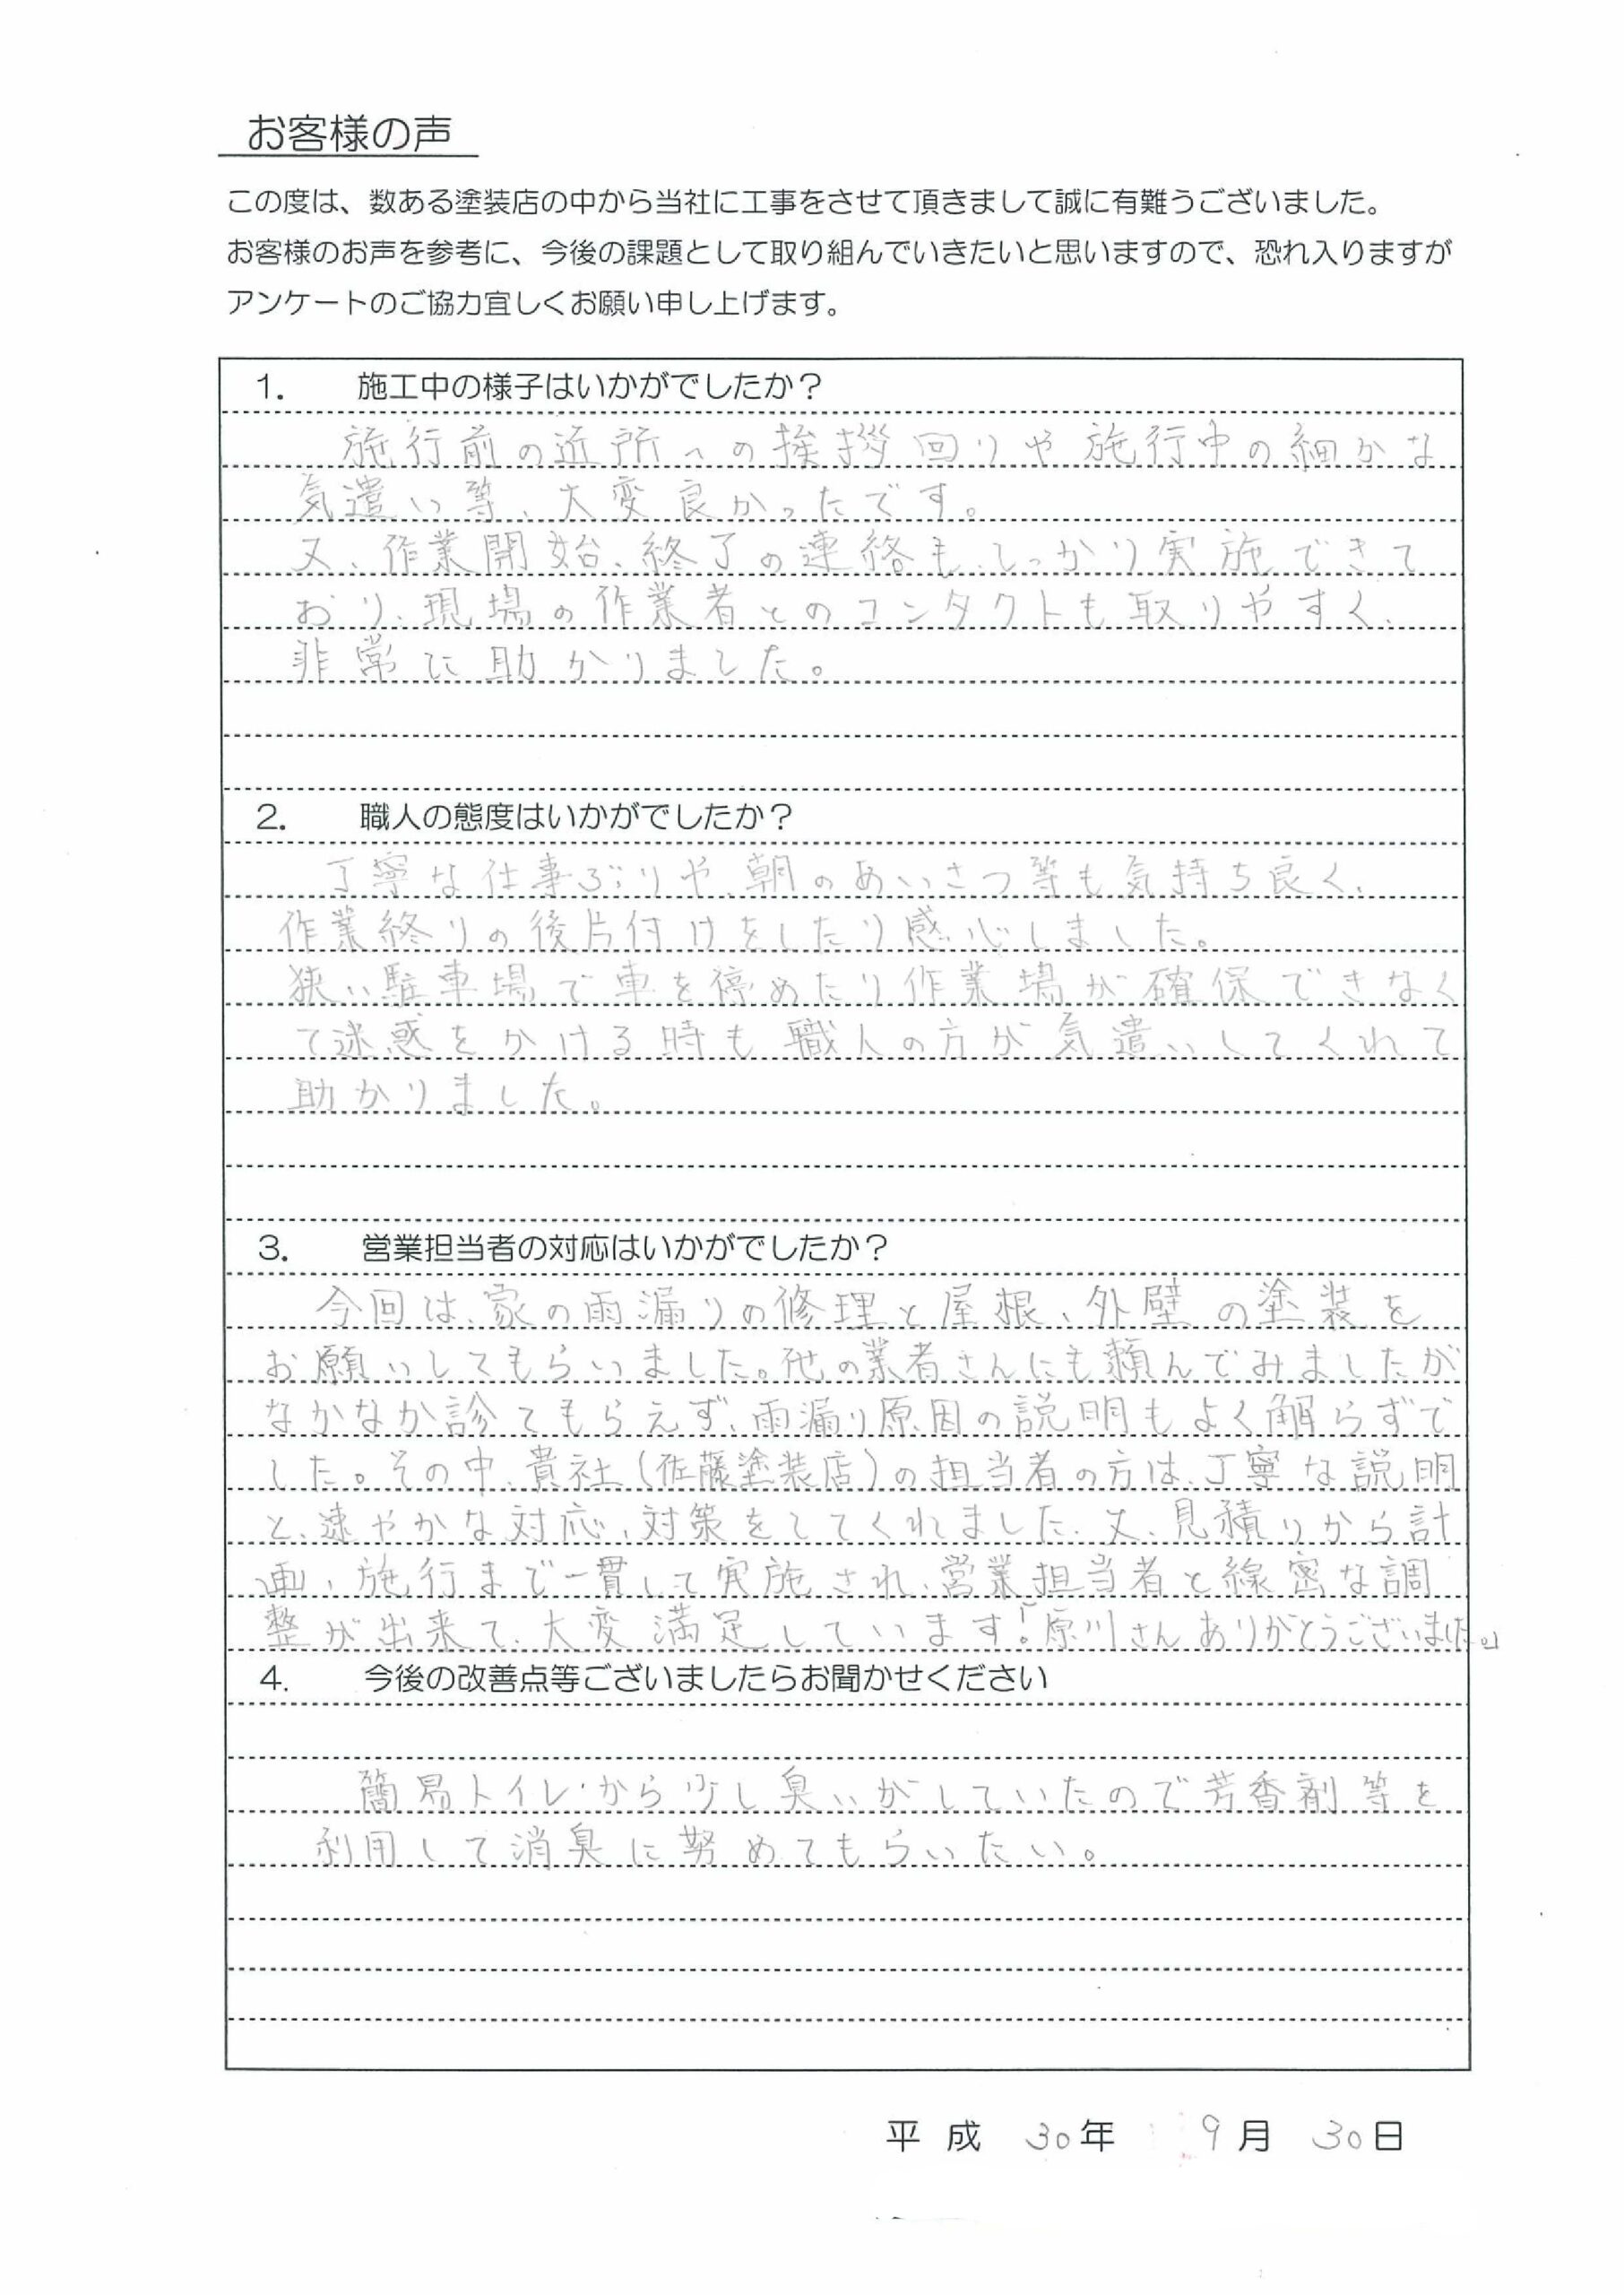 お客様の声
この度は、数ある塗装店の中から当社に工事をさせて頂きまして誠に有難うございました。
お客様のお声を参考に、今後の課題として取り組んでいきたいと思いますので、恐れ入りますが
アンケートのご協力宜しくお願い申し上げます。
1. 施工中の様子はいかがでしたか？
施行前の近所への挨拶回りや施行中の細かな
気遣い等、大変良かったです。
又、作業開始、終了の連絡も、しっかり実施できて
おり、現場の作業者とのコンタクトも取りやすく、
非常に助かりました。
2. 職人の態度はいかがでしたか？
丁寧な仕事ぶりや、朝のあいさつ等も気持ち良く、
作業終りの後片付けをしたり感心しました。
狭い駐車場で車を停めたり作業場が確保できなく
て迷惑をかける時も職人の方が気遣いしてくれて
助かりました。
3. 営業担当者の対応はいかがでしたか？
今回は、家の雨漏りの修理と屋根、外壁の塗装を
お願いしてもらいました。他の業者さんにも頼んでみましたが
なかなか診てもらえず、雨漏り原因の説明もよく解らずで
した。その中、貴社(佐藤塗装店)の担当者の方は、丁寧な説明
と、速やかな対応、対策をしてくれました。又、見積りから計
画、施行まで一貫して実施され、営業担当者と線密な調
整が出来て、大変満足しています!「原川さんありがとうございました。」
4. 今後の改善点等ございましたらお聞かせください
簡易トイレから少し臭いがしていたので芳香剤等を
利用して消臭に努めてもらいたい。
平成 30年 9月 30日